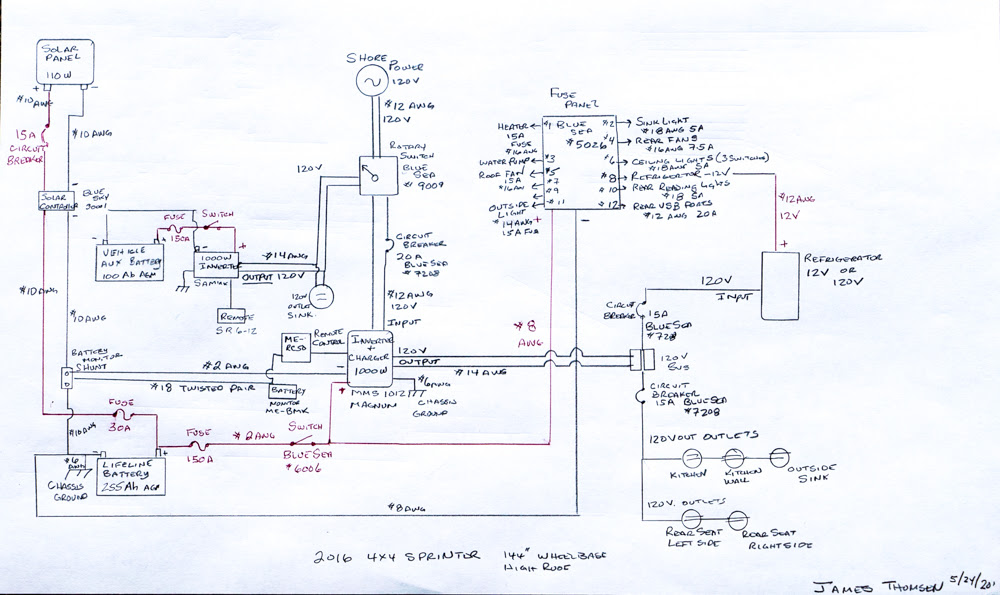 SOLAR
PANEL
110 W
+ -
#10 AWG
15A
CIRCUIT
BREAKER
#10 AWG
SOLAR
CONTROLLER
BLUE
SKY
#10 AWG
#10 AWG
VEHICLE
AUX BATTERY
100 Ah AGM
- +
FUSE
150A
SWITCH
- +
1000W
INVERTER
SAMLEX
REMOTE
SR6-12
#14 AWG
OUTPUT 120V
120V
OUTLET
SINK
SHORE
POWER
120V
#12 AWG
120V
120V
ROTARY
SWITCH
BLUE
SEA
# 9009
CIRCUIT
BREAKER
20A
BLUE SEA
# 7208
#12 AWG
120V
INPUT
INVERTER
+
CHARGER
1000W
- +
MMS 1012
MAGNUM
120V
OUTPUT
#14 AWG
#6 AWG
CHASSIS
GROUND
ME-
RC50
REMOTE
CONTROL
BATTERY
MONITOR
ME-BMK
BATTERY
MONITOR
SHUNT
#2 AWG
#18 TWISTED PAIR
FUSE
30A
#10 AWG
#6
AWG
CHASSIS
GROUND
- +
LIFELINE
BATTERY
255Ah AGM
FUSE
150A
#2 AWG
SWITCH
BLUE SEA
#6006
#8 AWG
FUSE
PANEL
BLUE
SEA
#5026
#1
#3
#5
#7
#9
#11
#2
#4
#6
#8
#10
#12
HEATER
15A
FUSE
#16 AWG
WATER PUMP
ROOF FAN
15A
OUTSIDE
LIGHT
#14 AWG
SINK LIGHT
#18 AWG 5A
REAR FANS
#16 AWG 7.5A
CEILING LIGHTS (3 SWITCHES)
#18 AWG 5A
REFRIGERATOR - 12V
REAR READING LIGHTS
#18 5A
REAR USB PORTS
#12 AWG 20A
+ -
#12 AWG
12V
+
REFRIGERATOR
12V OR
120V
120V
INPUT
#8
AWG
CIRCUIT
BREAKER
15A
BLUE SEA
120V
BUS
CIRCUIT
BREAKER
15A BLUE SEA
#7208
120V OUT OUTLETS
KITCHEN
KITCHEN
WALL
OUTSIDE
SINK
120V. OUTLETS
REAR SEAT
LEFT SIDE
REAR SEAT
RIGHT SIDE
2016 4X4 SPRINTOR 144" WHEELBASE
HIGH ROOF
JAMES THOMSEN 5/24/20